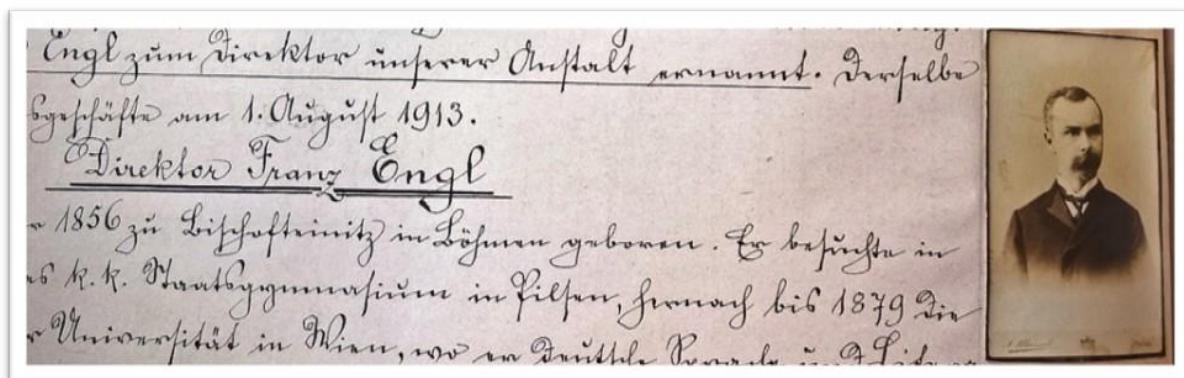 Engl zum Direktor unserer Anstalt ernannt. Derselbe
sgeschäfte am 1. August 1913.
Direktor Franz Engl
r 1856 zu Bischofteinitz in Böhmen geboren. Er besuchte in
es k. k. Staatsgymnasium in Pilsen, hernach bis 1879 die
r Universität in Wien, wo er deutsche Sprache und